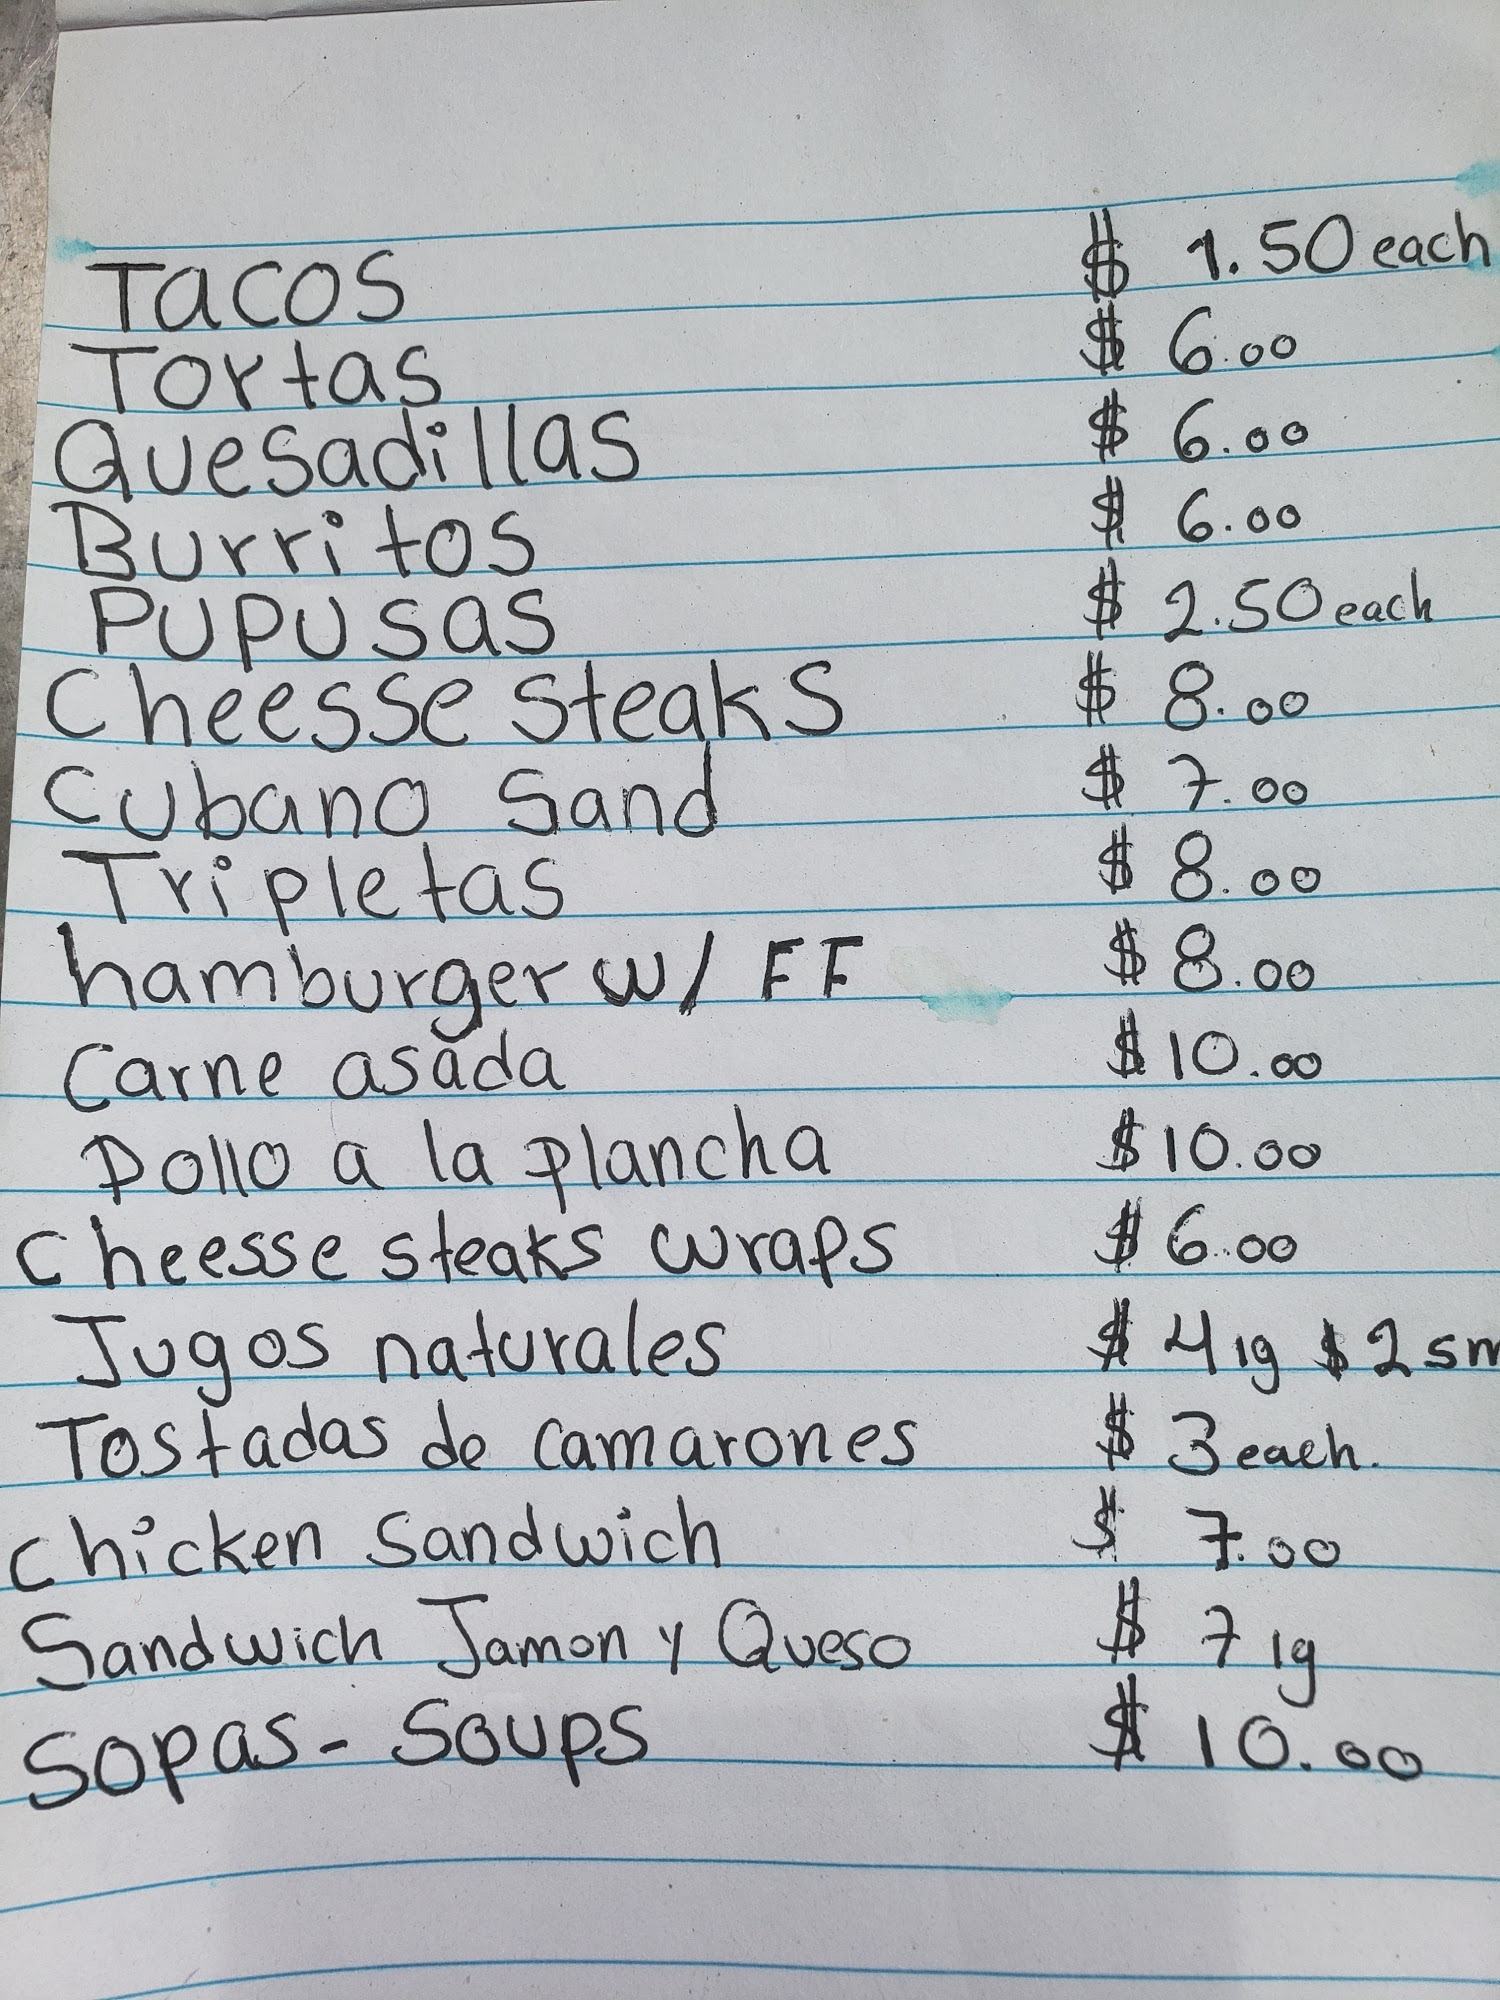 Tacos $ 1.50 each
Tortas $ 6.00
Quesadillas $ 6.00
Burritos $ 6.00
Pupusas $ 2.50 each
Cheesse steaks $ 8.00
Cubano Sand $ 7.00
Tripletas $ 8.00
hamburger w/ FF $ 8.00
Carne asada $ 10.00
Pollo a la plancha $ 10.00
Cheesse steaks wraps $ 6.00
Jugos naturales $ 4 lg $ 2 sm
Tostadas de camarones $ 3 each.
Chicken Sandwich $ 7.00
Sandwich Jamon y Queso $ 7 lg
Sopas - Soups $ 10.00